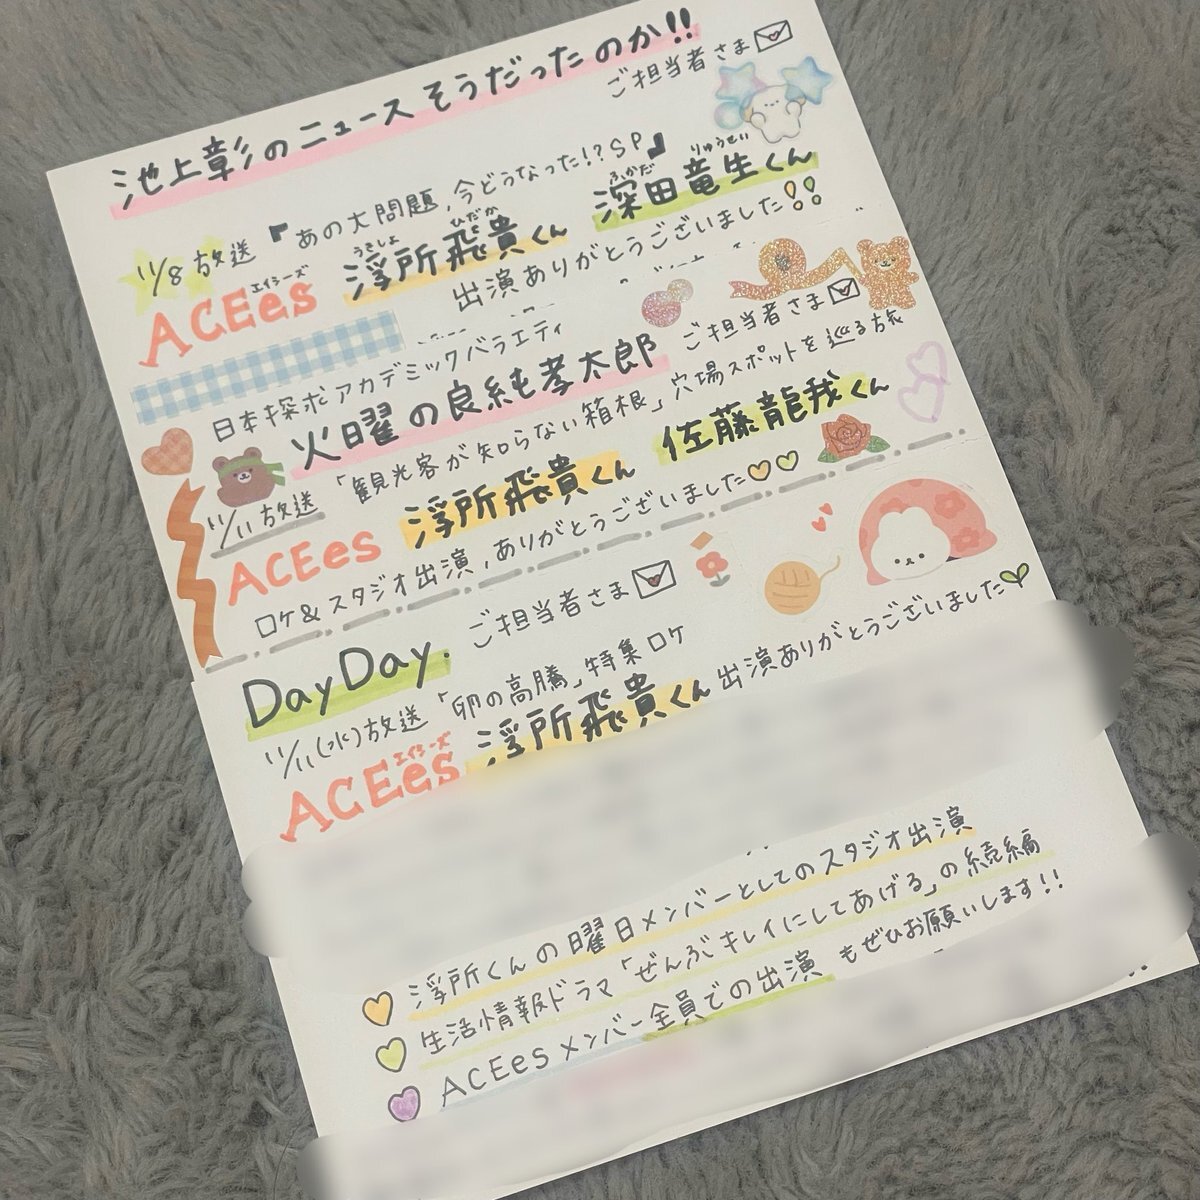 池上彰のニュースそうだったのか!!
ご担当者さま
11/8 放送『あの大問題,今どうなった!?SP』
ACEes エイラーズ 浮所飛貴くん うきしょ ひだか 深田竜生くん ふかだ りゅうせい
出演ありがとうございました!!
日本探求アカデミックバラエティ
火曜の良純孝太郎 ご担当者さま
11/11 放送 「観光客が知らない箱根」穴場スポットを巡る旅
ACEes 浮所飛貴くん 佐藤龍我くん
ロケ&スタジオ出演,ありがとうございました
DayDay. ご担当者さま
11/11(水)放送「卵の高騰」特集ロケ
ACEes エイラーズ 浮所飛貴くん 出演ありがとうございました
浮所くんの曜日メンバーとしてのスタジオ出演
生活情報ドラマ「ぜんぶキレイにしてあげる」の続編
ACEesメンバー全員での出演 もぜひお願いします!!